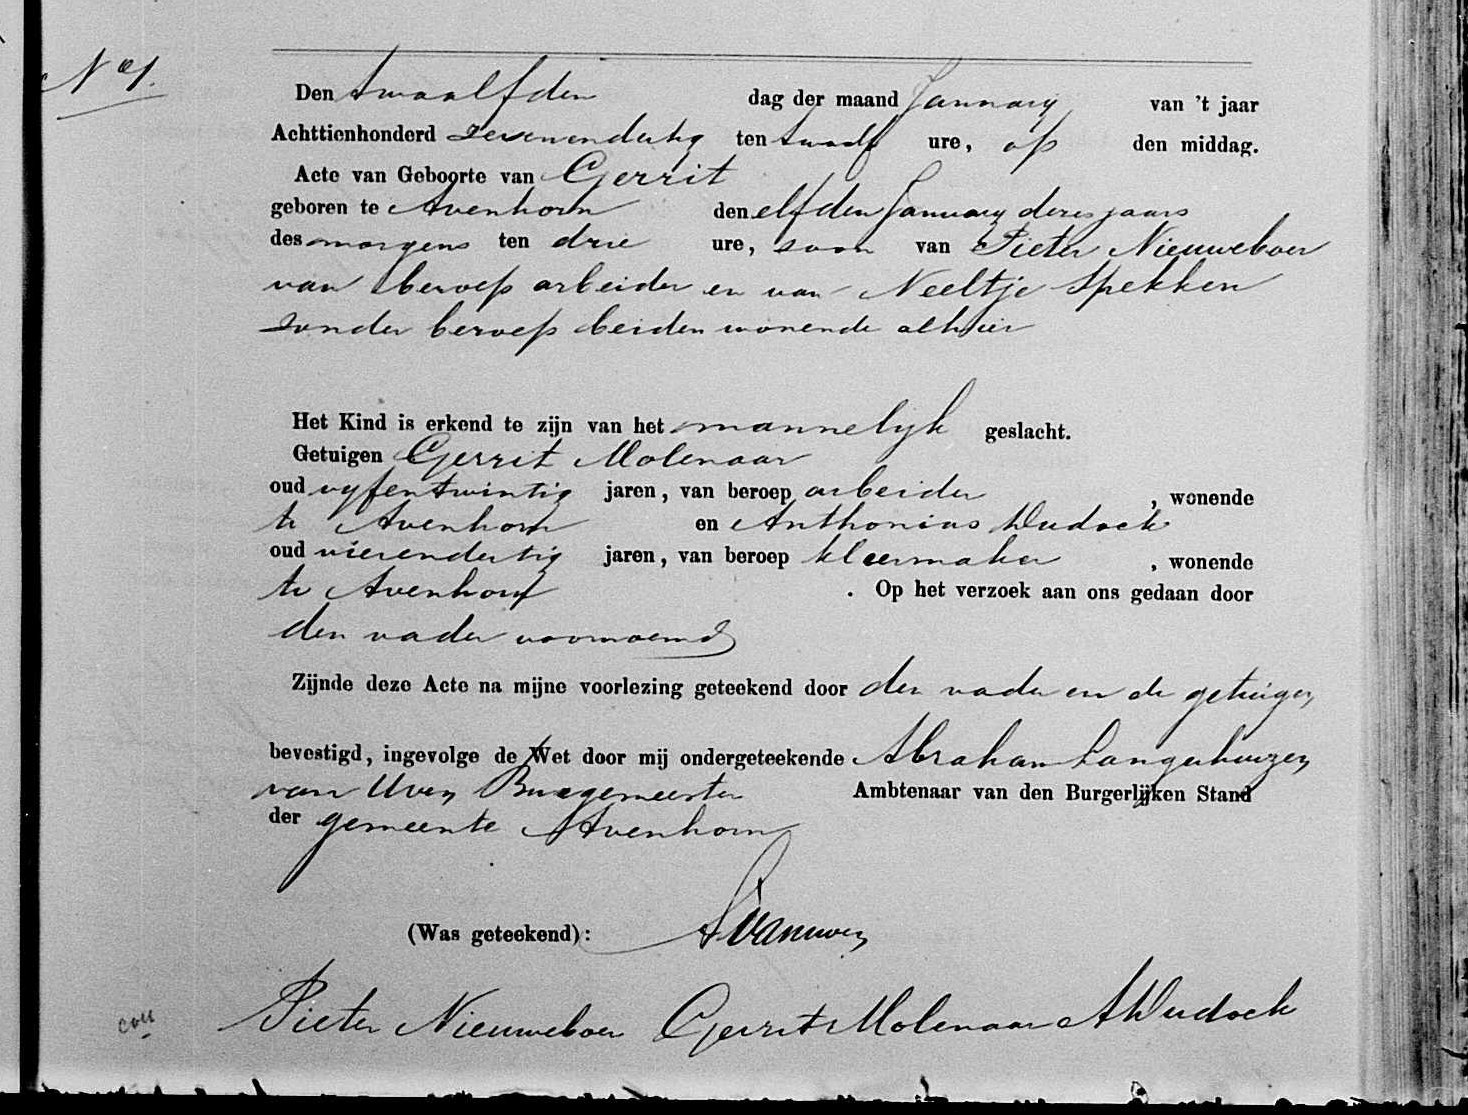 No 1.
Den twaalfden dag der maand January van 't jaar
Achttienhonderd zevenendertig ten twaalf ure, op den middag.
Acte van Geboorte van Gerrit
geboren te Avenhorn den elfden January dezes jaars
des morgens ten drie ure, zoon van Pieter Nieuweboer
van beroep arbeider en van Neeltje Spekken
zonder beroep beiden wonende alhier
Het Kind is erkend te zijn van het mannelijk geslacht.
Getuigen Gerrit Molenaar
oud vyfentwintig jaren, van beroep arbeider, wonende
te Avenhorn en Anthonius Dudock
oud vierendertig jaren, van beroep kleermaker, wonende
te Avenhorn. Op het verzoek aan ons gedaan door
den vader voornoemd
Zijnde deze Acte na mijne voorlezing geteekend door den vader en de getuigen
bevestigd, ingevolge de Wet door mij ondergeteekende Abraham Langehuizen
van Uven Burgemeester Ambtenaar van den Burgerlijken Stand
der gemeente Avenhorn
(Was geteekend): AvanUven
Pieter Nieuweboer Gerrit Molenaar ADudock
coll